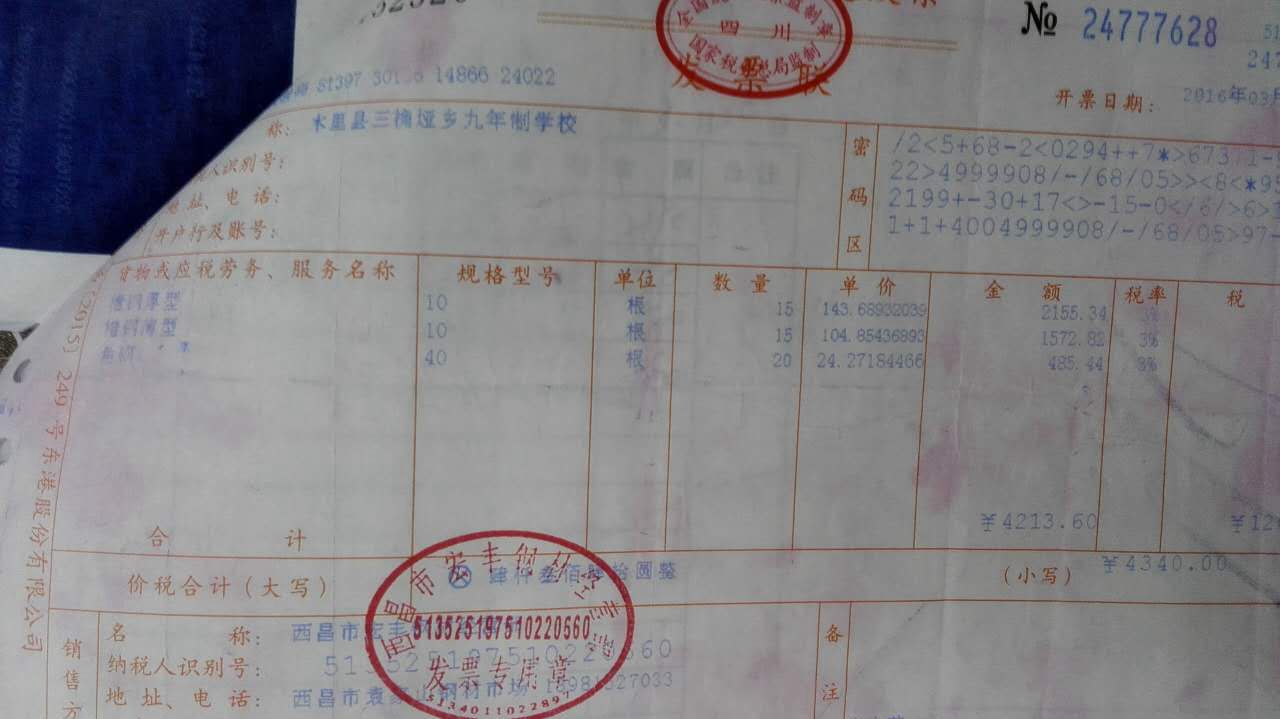 四川
国家税务总局监制
发票联
№ 24777628
开票日期: 2016年03月
51397 301 6 14866 24022
称: 木里县三桷垭乡九年制学校
人识别号:
地址、电话:
开户行及账号:
密码区
/2<5+68-2<0294++7*>673/1-
22>4999908/-/68/05>><8<*95
2199+-30+17<>-15-0</6/>6>
1+1+4004999908/-/68/05>97-
货物或应税劳务、服务名称 规格型号 单位 数量 单价 金额 税率 税
槽钢厚型 10 根 15 143.68932039 2155.34 3%
槽钢薄型 10 根 15 104.85436893 1572.82 3%
角钢 40 根 20 24.27184466 485.44 3%
合计 ¥4213.60 ¥12
价税合计(大写) ⊗ 肆仟叁佰肆拾圆整 (小写) ¥4340.00
销售方
名称: 西昌市宏丰
纳税人识别号: 513525197510220560
地址、电话: 西昌市袁家山钢材市场
备注
西昌市宏丰钢丝
513525197510220560
发票专用章
5134011022891
(2015) 249 号东港股份有限公司